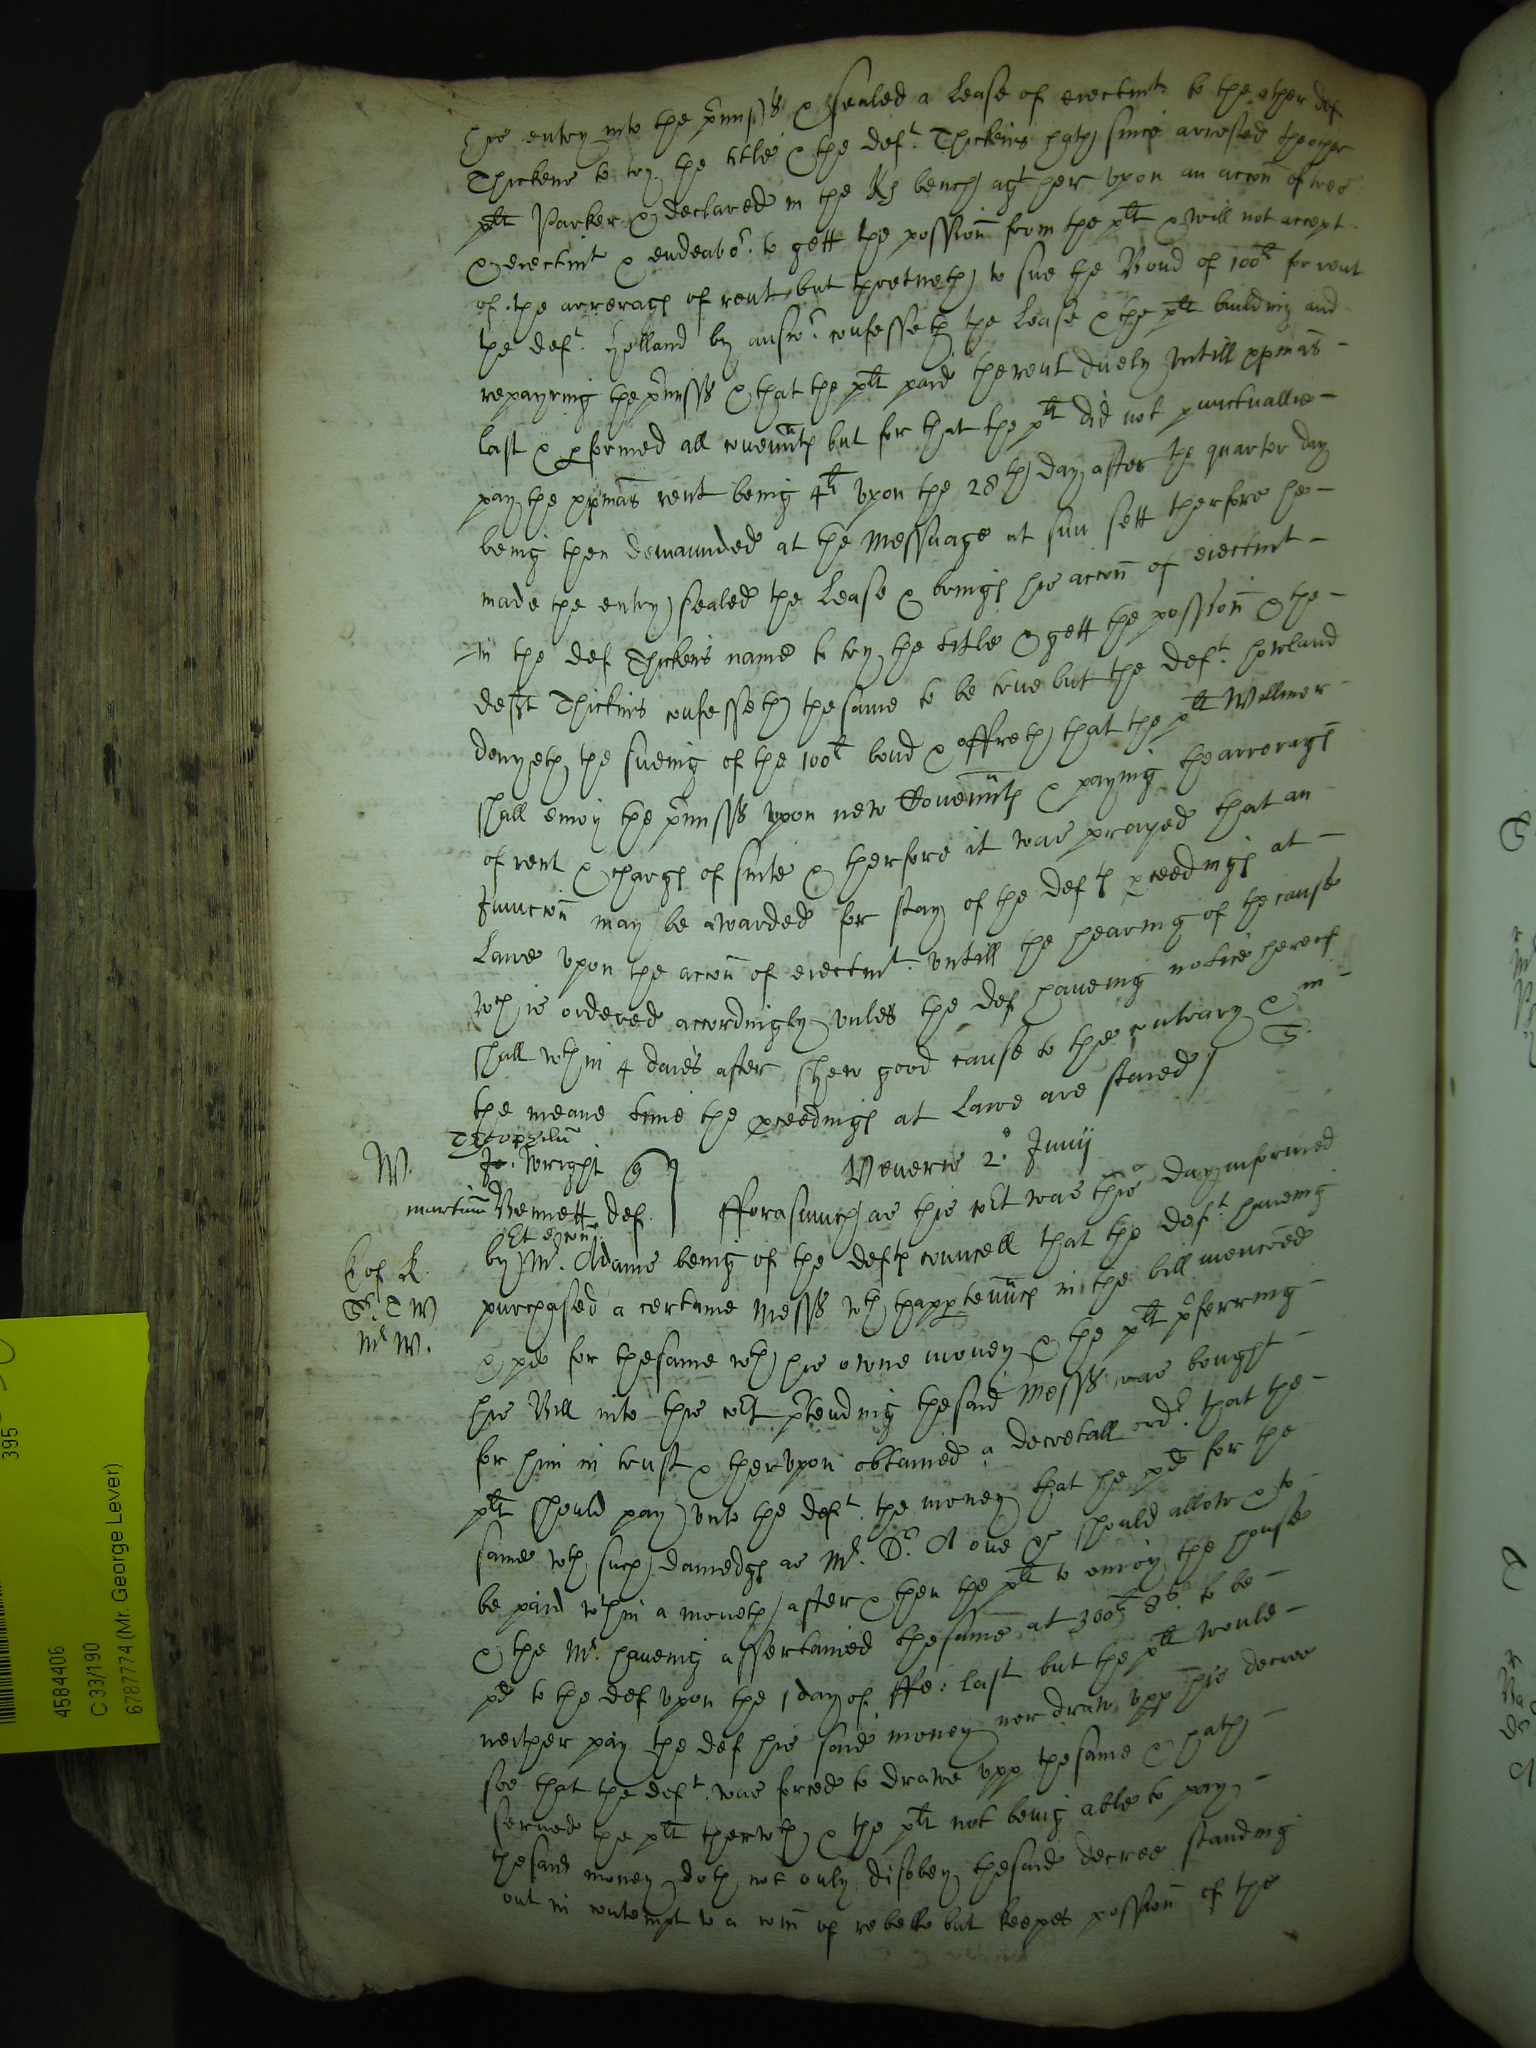 his entry into the p̃miss͠s & sealed a Lease of eiectmt. to the other def
Thickens to try the title & the deft. Thickins hath since arrested the other
plt Parker & declared in the Ks bench agt her vpon an accon̄ of tres
& eiectmt & endeavor. to gett the possion̄ from the plt & will not accept
of the arrerags of rent but threatneth to sue the Bond of 100li for rent
the deft. Holland by answr. confesseth the Lease & the plt building and
repayring the p̃miss͠s & that the plt paid the rent duely vntill xp̄mas
last & pformed all covenn̄ts but for that the plt did not punctuallie
pay the xp̄mas rent being 4li vpon the 28th day after the quarter day
being then demaunded at the Messuage at sun sett therfore he
made the entry sealed the Lease & brings his accon̄ of eiectmt
in the def Thickins name to try the title & gett the possion̄ & the
deft Thickins confesseth the same to be true but the deft. Howland
denyeth the sueing of the 100li bond & offreth that the plt Wollmer
shall enioy the p̃miss͠s vpon new Covenn̄ts & paying the arrerags
of rent & chargs of suite & therfore it was prayed that an
Iniuncon̄ may be awarded for stay of the defts pceedings at
Lawe vpon the accon̄ of eiectmt. vntill the hearing of the cause
wch is ordered accordingly vnles the def haueing notice hereof
shall wthin 4 daies after shew good cause to the contrary & in
the meane time the pceedings at Lawe are staied / T.
Veneris 2o. Junij
W.
Theophilu
Jo. Wright q
martinu Bennett def.
Et e con
fforasmuch as this cort was this day informed
by Mr. Adams being of the defts councell that the deft. haueing
L of R.
purchased a certaine mess͠s wth thapptenn̄cs in the bill menconed
Sr. T W
Mr W.
& pd for the same wth his owne money & the plt p̃ferring
his Bill into this cort p̃tending the said Mess͠s was bought
for him in trust & thervpon obtained a decretall ordr. that the
plt should pay vnto the deft. the money that he pd for the
same wth such damedgs as Mr. Dr. A one &c should allow & to
be paid wthin a moneth after & then the plt to enioy the house
& the Mr. haueing assertained the same at 300li 8s. to be
pd to the def vpon the 1 day of ffe: last but the plt would
neither pay the def his said money nor draw vpp his decree
soe that the deft. was forced to drawe vpp the same & hath
serued the plt therwth & the plt not being able to pay
the said money doth not only disobey the said decree standing
out in contempt to a com̄ of rebell but keepes possion̄ of the
395
4584406
C 33/190
6787774 (Mr. George Lever)